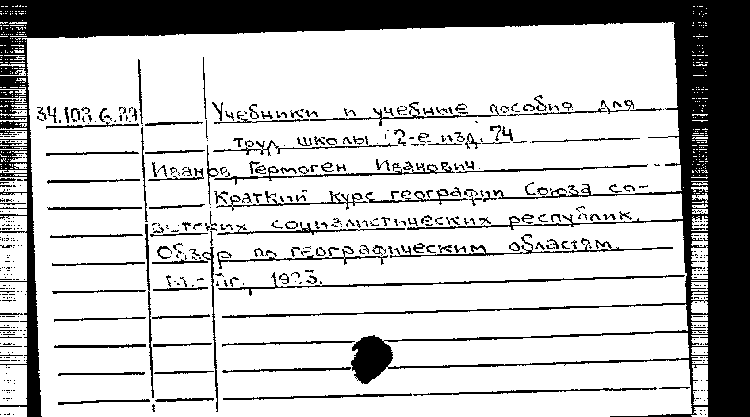 34.108.6.89 Учебники и учебные пособия для
труд. школы 2-е изд. 74
Иванов, Гермоген Иванович.
Краткий курс географии Союза со-
ветских социалистических республик.
Обзор по географическим областям.
М.-Пг., 1923.